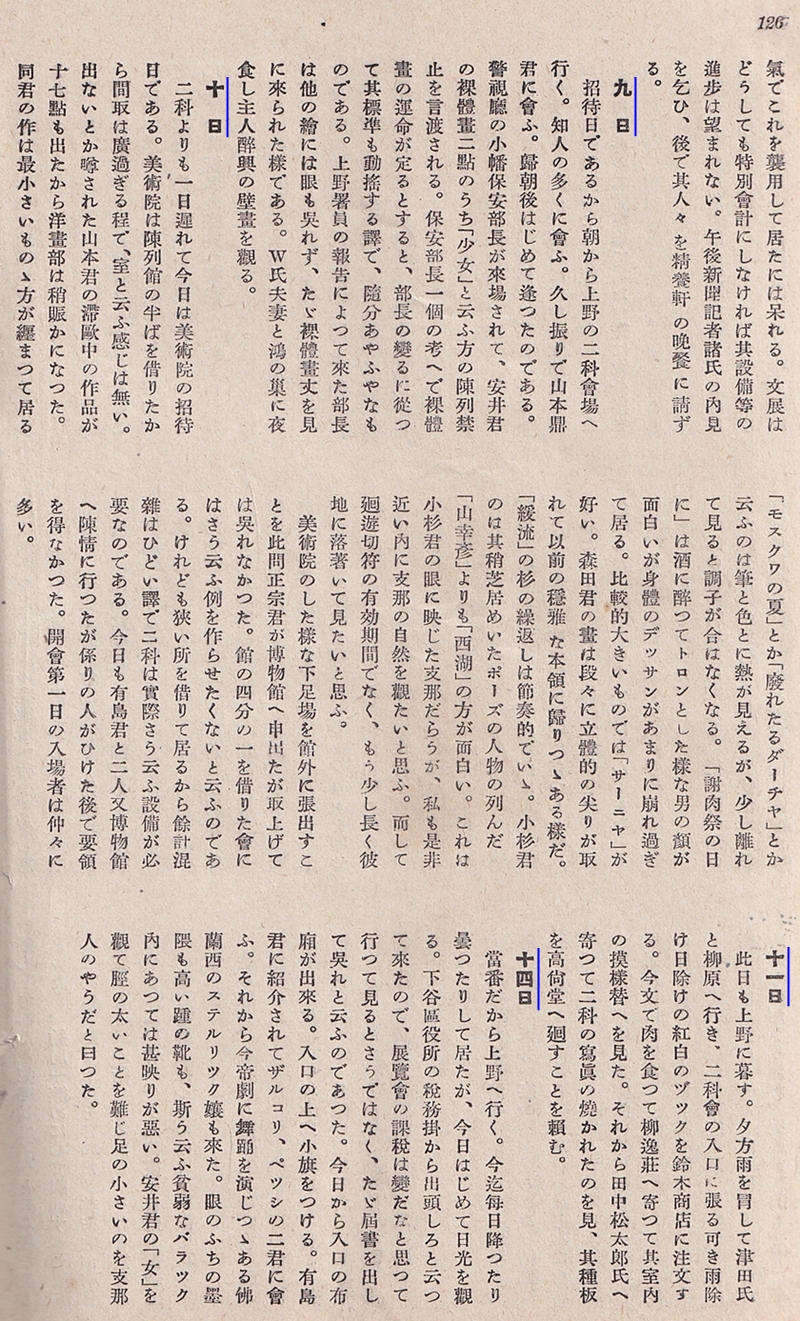 126
氣でこれを襲用して居たには呆れる。文展は
どうしても特別會計にしなければ其設備等の
進歩は望まれない。午後新聞記者諸氏の內見
を乞ひ、後で其人々を精養軒の晩餐に請ず
る。
九日
招待日であるから朝から上野の二科會場へ
行く。知人の多くに會ふ。久し振りで山本鼎
君に會ふ。歸朝後はじめて逢つたのである。
警視廳の小幡保安部長が來場されて、安井君
の裸體畫二點のうち「少女」と云ふ方の陳列禁
止を言渡される。保安部長一個の考へで裸體
畫の運命が定るとすると、部長の變るに從つ
て其標準も動搖する譯で、隨分あやふやなも
のである。上野署員の報告によつて來た部長
は他の繪には眼も吳れず、たゞ裸體畫丈を見
に來られた樣である。W氏夫妻と鴻の巢に夜
食し主人醉興の壁畫を觀る。
十日
二科よりも一日遲れて今日は美術院の招待
日である。美術院は陳列館の半ばを借りたか
ら間取は廣過ぎる程で、室と云ふ感じは無い。
出ないとか噂された山本君の滯歐中の作品が
十七點も出たから洋畫部は稍賑かになつた。
同君の作は最小さいものゝ方が纒まつて居る
「モスクワの夏」とか「廢れたるダーチヤ」とか
云ふのは筆と色とに熱が見えるが、少し離れ
て見ると調子が合はなくなる。「謝肉祭の日
に」は酒に醉つてトロンとした樣な男の顏が
面白いが身體のデッサンがあまりに崩れ過ぎ
て居る。比較的大きいものでは「サーニヤ」が
好い。森田君の畫は段々に立體的の尖りが取
れて以前の穩雅な本領に歸りつゝある樣だ。
「緩流」の杉の繰返しは節奏的でいゝ。小杉君
のは其稍芝居めいたポーズの人物の列んだ
「山幸彥」よりも「西湖」の方が面白い。これは
小杉君の眼に映じた支那だらうが、私も是非
近い內に支那の自然を觀たいと思ふ。而して
廻遊切符の有効期間でなく、もう少し長く彼
地に落著いて見たいと思ふ。
美術院のした樣な下足場を館外に張出すこ
とを此間正宗君が博物館へ申出たが取上げて
は吳れなかつた。館の四分の一を借りた會に
はさう云ふ例を作らせたくないと云ふのであ
る。けれども狹い所を借りて居るから餘計混
雜はひどい譯で二科は實際さう云ふ設備が必
要なのである。今日も有島君と二人又博物館
へ陳情に行つたが係りの人がひけた後で要領
を得なかつた。開會第一日の入場者は仲々に
多い。
十一日
此日も上野に暮す。夕方雨を冒して津田氏
と柳原へ行き、二科會の入口に張る可き雨除
け日除けの紅白のヅックを鈴木商店に注文す
る。今文で肉を食つて柳逸莊へ寄つて其室內
の摸樣替へを見た。それから田中松太郎氏へ
寄つて二科の寫眞の燒かれたのを見、其種板
を高尙堂へ廻すことを賴む。
十四日
當番だから上野へ行く。今迄每日降つたり
曇つたりして居たが、今日はじめて日光を觀
る。下谷區役所の稅務掛から出頭しろと云つ
て來たので、展覽會の課稅は變だなと思つて
行つて見るとさうではなく、たゞ屆書を出し
て吳れと云ふのであつた。今日から入口の布
廂が出來る。入口の上へ小旗をつける。有島
君に紹介されてザルコリ、ペツシの二君に會
ふ。それから今帝劇に舞踊を演じつゝある佛
蘭西のステルリツク孃も來た。眼のふちの墨
隈も高い踵の靴も、斯う云ふ貧弱なバラック
內にあつては甚映りが惡い。安井君の「女」を
觀て脛の太いことを難じ足の小さいのを支那
人のやうだと曰つた。